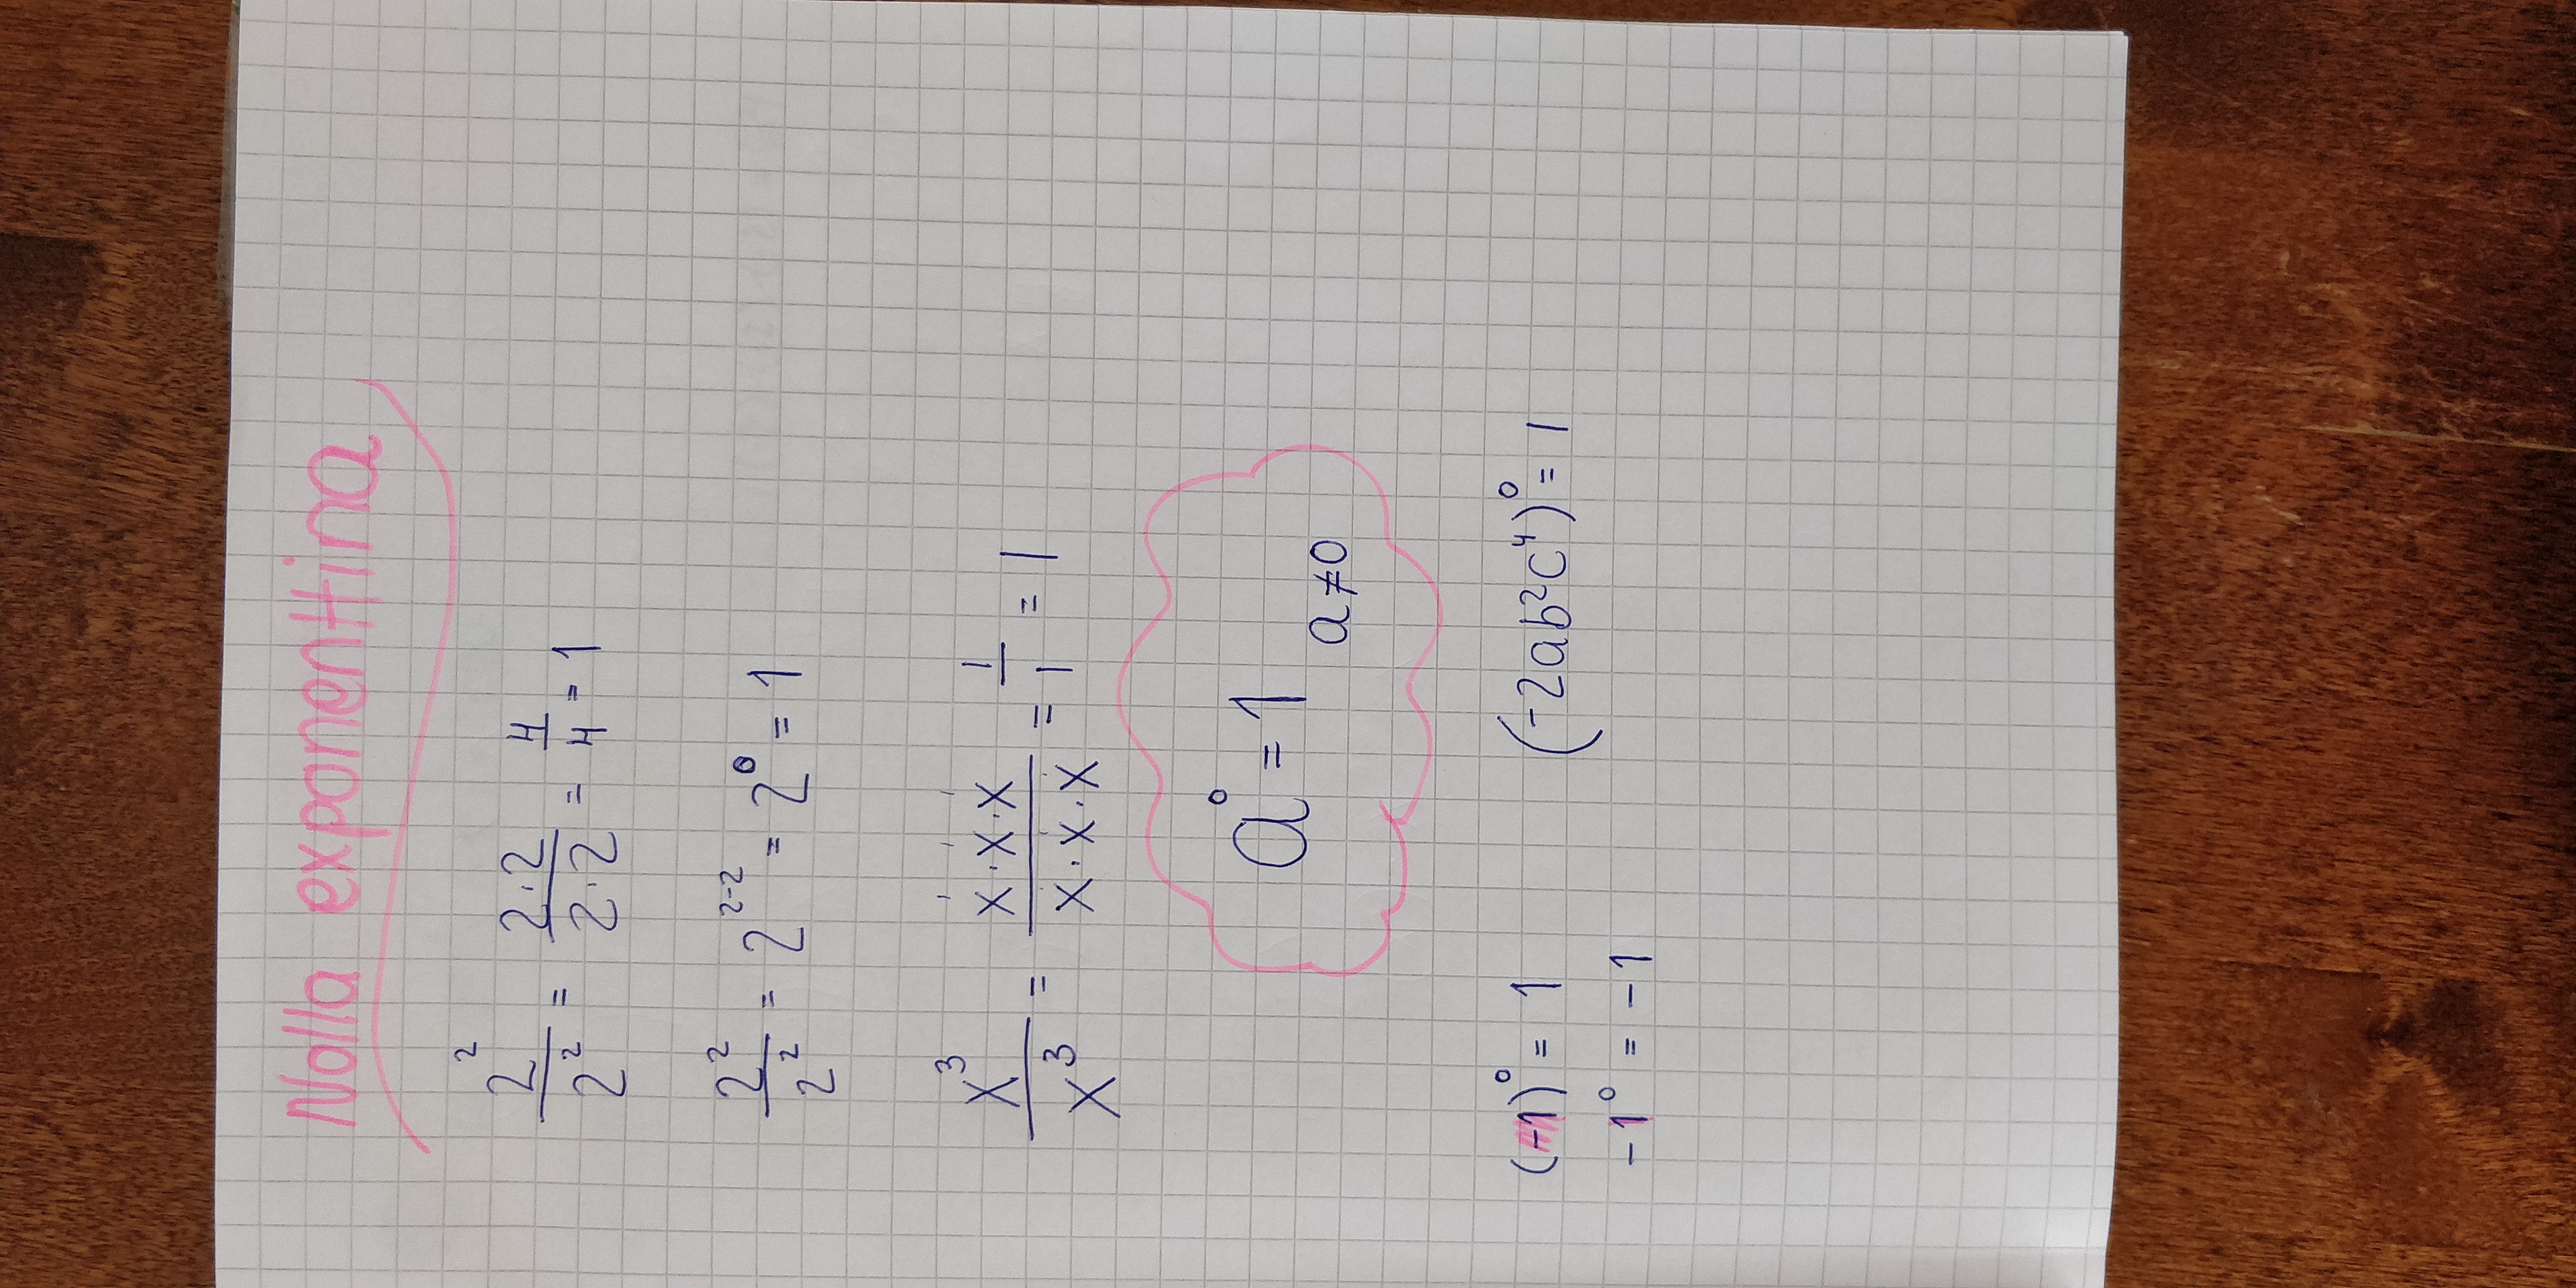 Nolla exponenttina
2²/2² = 2·2/2·2 = 4/4 = 1
2²/2² = 2²⁻² = 2⁰ = 1
x³/x³ = x·x·x/x·x·x = 1/1 = 1
a⁰ = 1
a≠0
(-1)⁰ = 1 (-2ab²c⁴)⁰ = 1
-1⁰ = -1